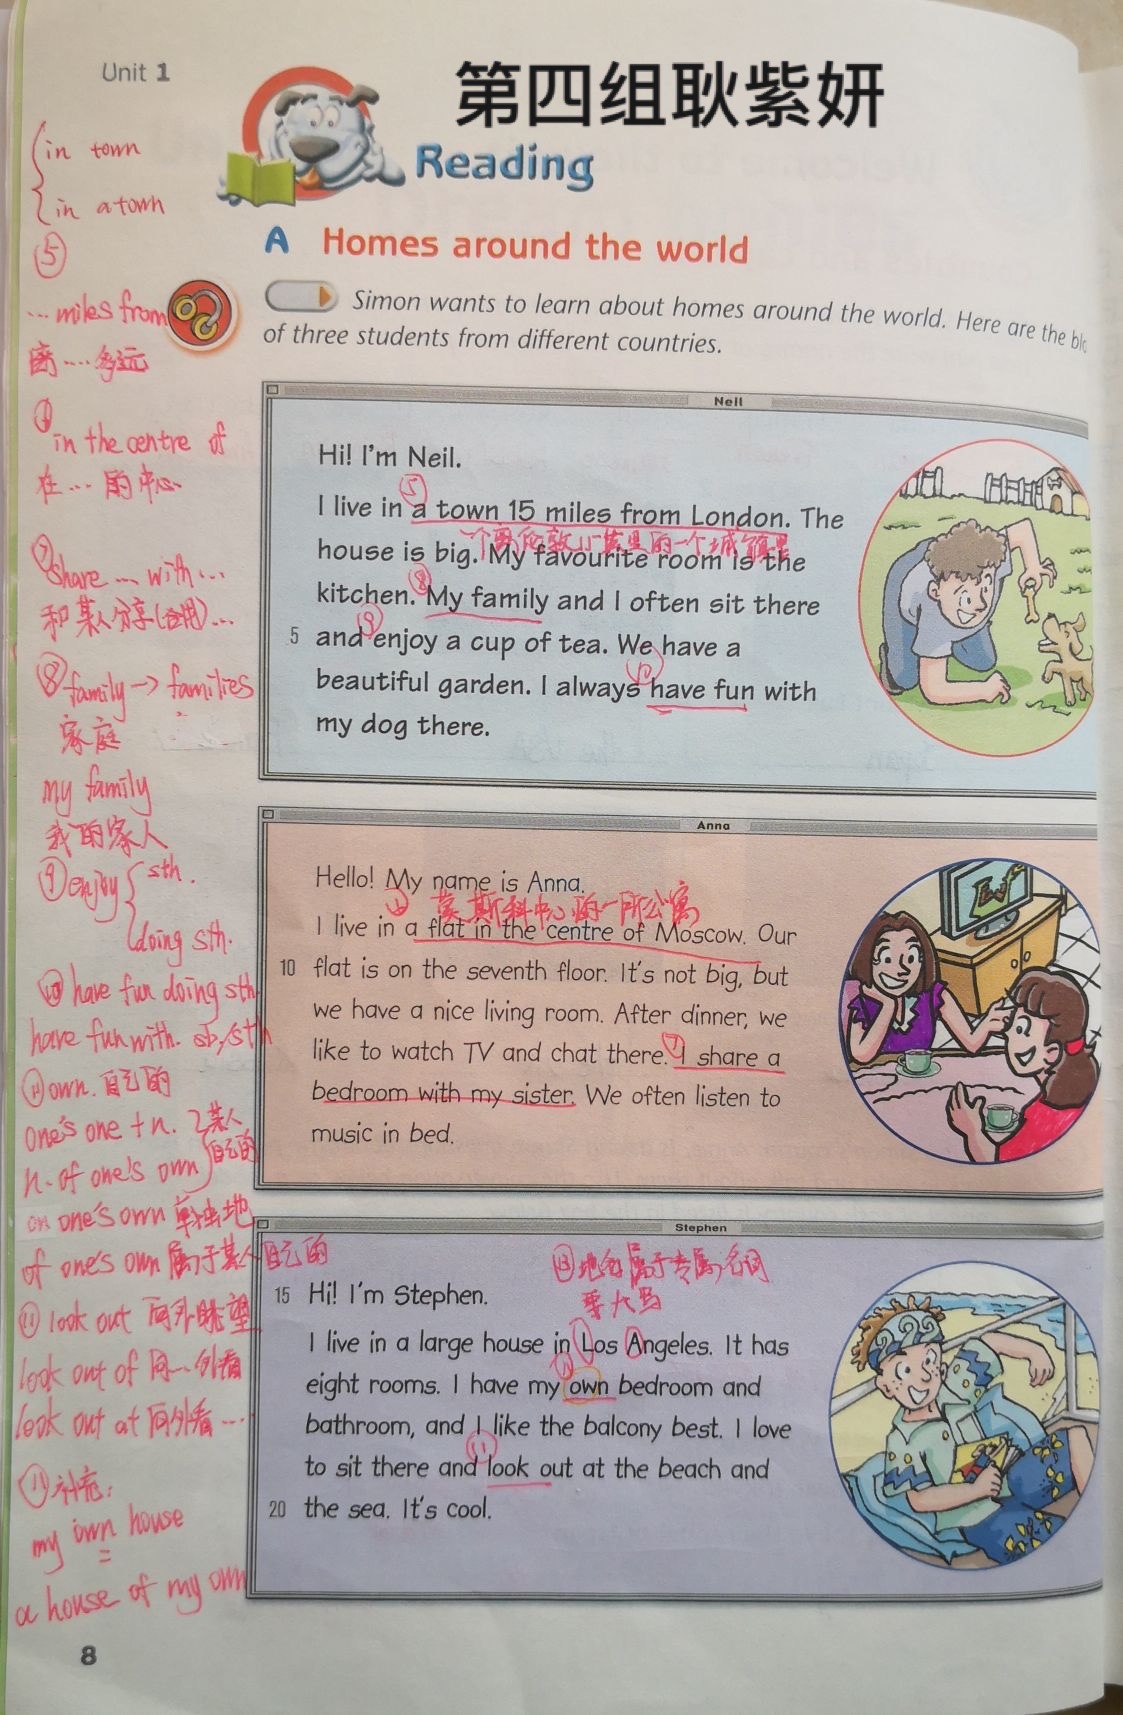 Unit 1
第四组耿紫妍
Reading
A Homes around the world
Simon wants to learn about homes around the world. Here are the blo
of three students from different countries.
{in town
in a town
⑤
...miles from
离....多远
⑥in the centre of
在...的中心
⑦share ... with...
和某人分享(合用)...
⑧family→families
家庭
my family
我的家人
⑨enjoy{sth.
doing sth.
⑩have fun doing sth
have fun with. sb/sth
own. 自己的
one's one + n. }某人
n. of one's own 自己的
on one's own 单独地
of one's own 属于某人自己的
⑪look out 向外眺望
look out of 向...外看
look out at 向外看...
补充:
my own house
=
a house of my own
Neil
Hi! I'm Neil.
⑤
I live in a town 15 miles from London. The
house is big. My favourite room is the
⑧
kitchen. My family and I often sit there
⑨
5 and enjoy a cup of tea. We have a
⑩
beautiful garden. I always have fun with
my dog there.
Anna
Hello! My name is Anna.
莫斯科中心的一所公寓
I live in a flat in the centre of Moscow. Our
10 flat is on the seventh floor. It's not big, but
we have a nice living room. After dinner, we
⑦
like to watch TV and chat there. I share a
bedroom with my sister. We often listen to
music in bed.
Stephen
⑬地名属于专属名词
要大写
15 Hi! I'm Stephen.
I live in a large house in Los Angeles. It has
eight rooms. I have my own bedroom and
bathroom, and I like the balcony best. I love
⑪
to sit there and look out at the beach and
20 the sea. It's cool.
8